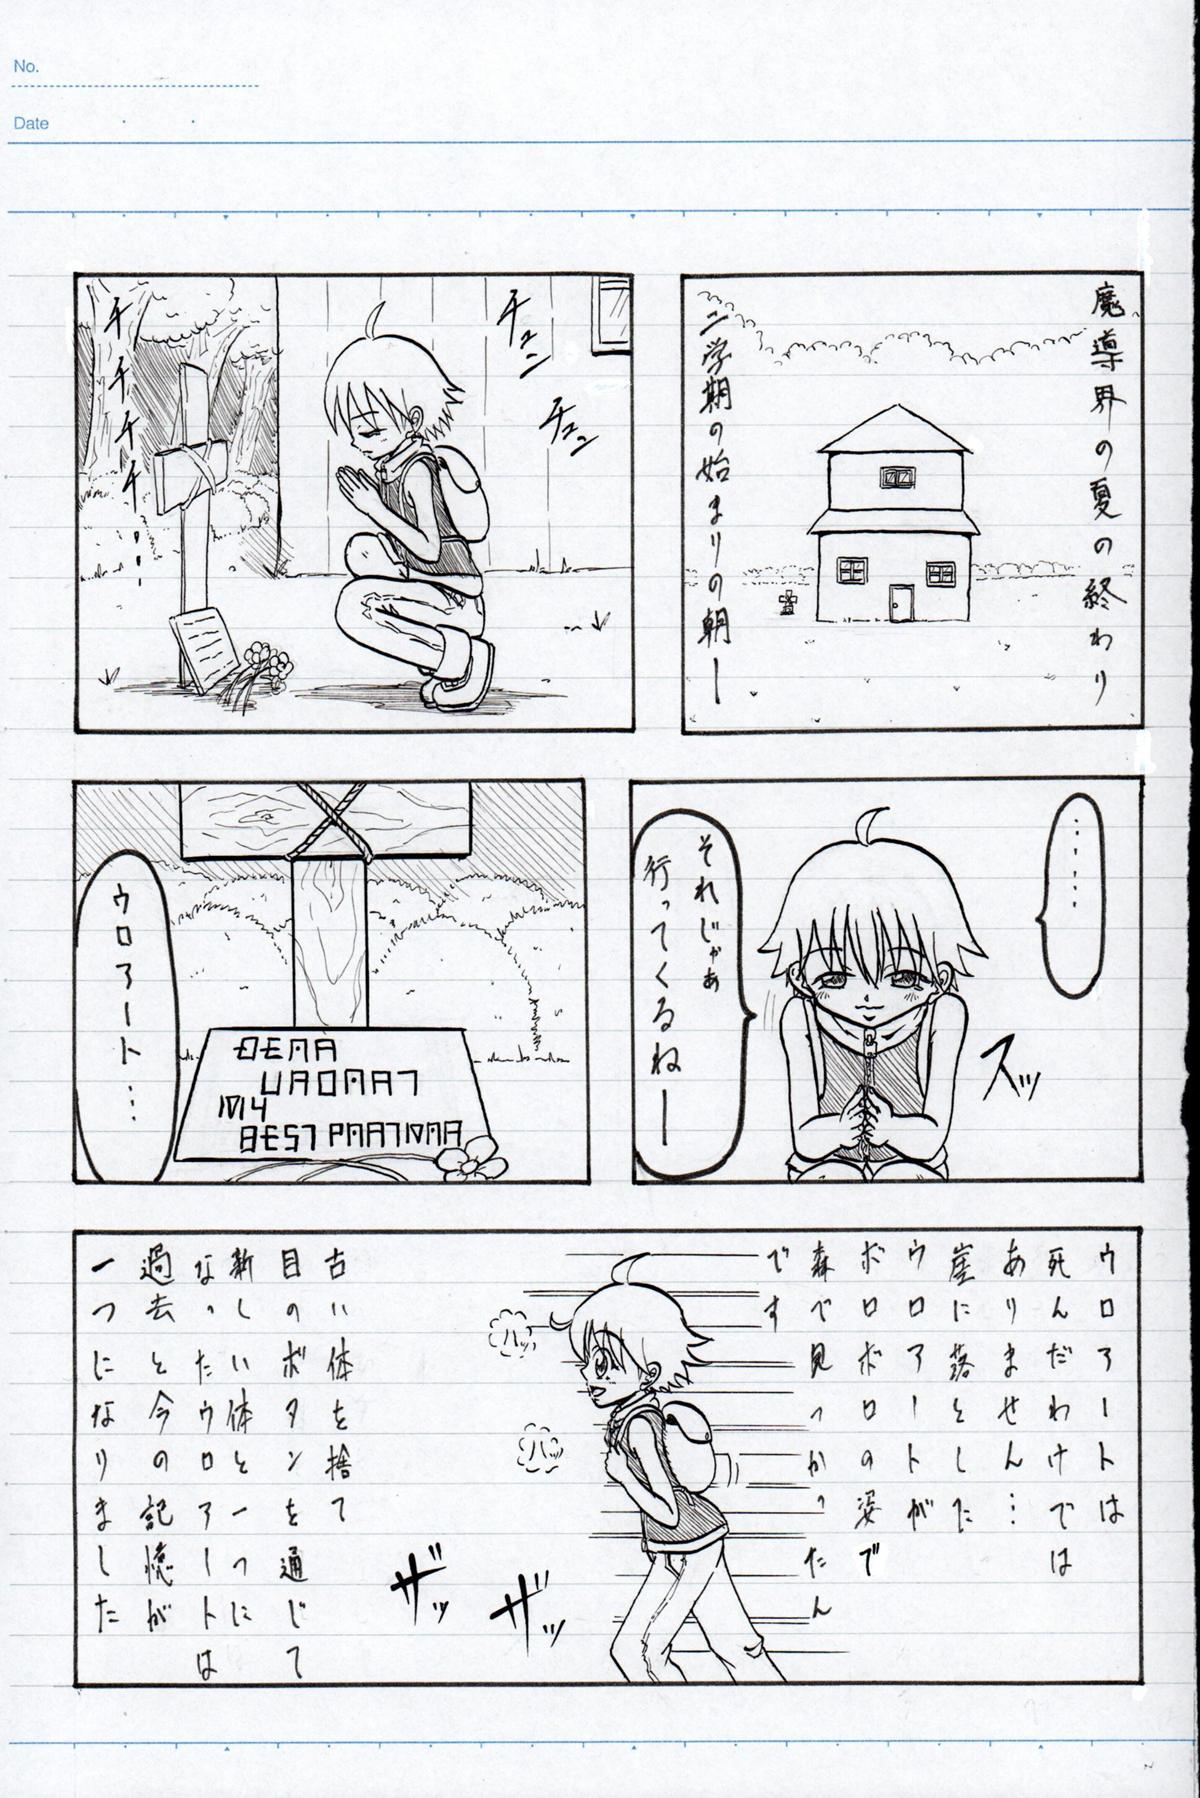 No.
Date
魔導界の夏の終わり
二学期の始まりの朝ー
チュン
チュン
チチチチチ…
………
スッ
それじゃあ
行ってくるねー
ウロアート…
BEST
ウロアートは
死んだわけでは
ありません…
崖に落とした
ウロアートが
ボロボロの姿で
森で見つかったん
です
ハッ
ハッ
ザッ
ザッ
古い体を捨て
目のボタンを通じて
新しい体と一つに
なったウロアートは
過去と今の記憶が
一つになりました